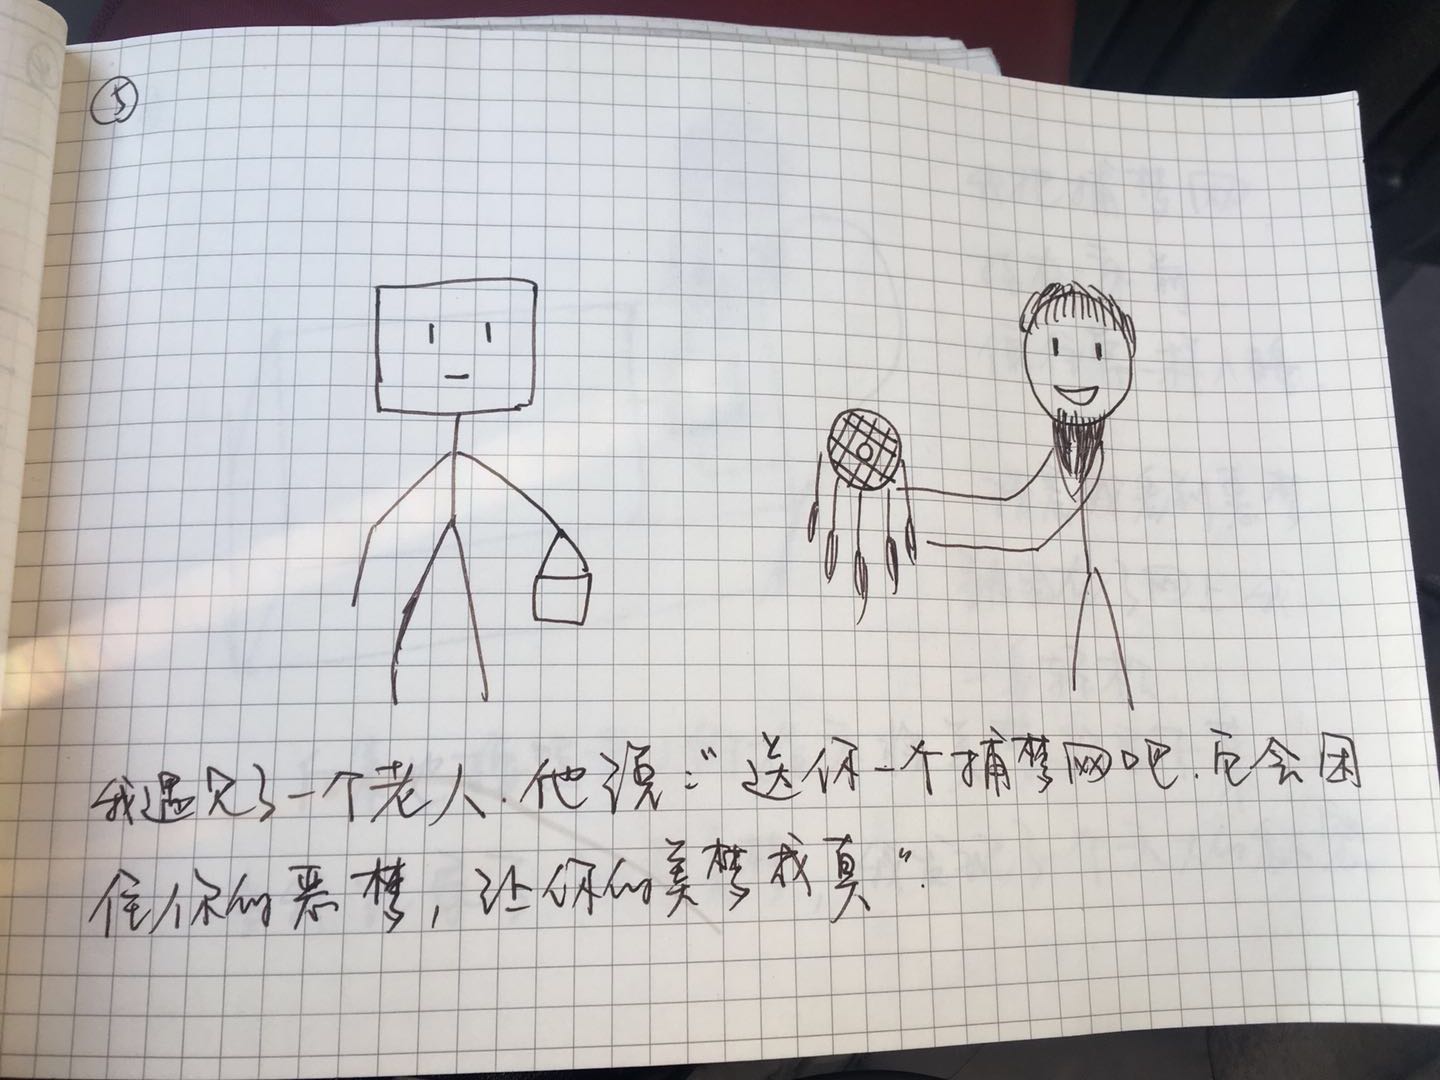 ⑤
我遇见了一个老人.他说:“送你一个捕梦网吧.它会困
住你的恶梦,让你的美梦成真”.